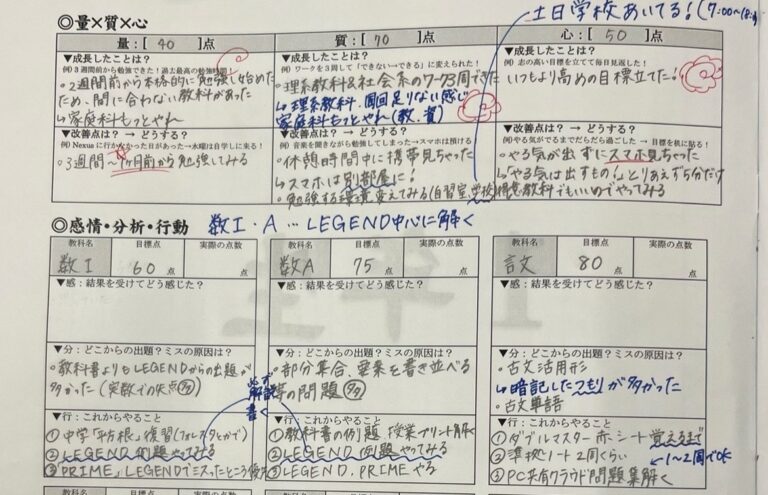 土日学校あいてる!(7:00~18:
◎量×質×心
量:[ 40 ]点
質:[ 70 ]点
心:[ 50 ]点
▼成長したことは?
例)3週間前から勉強できた!過去最高の勉強時間!
・2週間前から本格的に勉強し始めた
ため、間に合わない教科があった
↳家庭科もっとやれ
▼成長したことは?
例)ワークを3周して「できない→できる」に変えられた!
・理系教科&社会系のワーク3周できた
↳理系教科、周回足りない感じ
家庭科もっとやれ(教、資)
▼成長したことは?
例)志の高い目標を立てて毎日見返した!
いつもより高めの目標立てた!
▼改善点は? → どうする?
例)Nexusに行かなかった日があった→水曜は自学しに来る!
・3週間~1ヶ月前から勉強してみる
▼改善点は? → どうする?
例)音楽を聞きながら勉強してしまった→スマホは預ける
・休憩時間中に携帯見ちゃった
↳スマホは別部屋に!
・勉強する環境変えてみる(自習室、学校)
▼改善点は? → どうする?
例)やる気がでるまでだらだら過ごした → 目標を机に貼る!
・やる気が出ずにスマホ見ちゃった
↳やる気は出すもの!とりあえず5分だけ
得意教科でもいいのでやってみる
◎感情・分析・行動
数I・A…LEGEND中心に解く
教科名 目標点 実際の点数
数I 60 点 点
教科名 目標点 実際の点数
数A 75 点 点
教科名 目標点 実際の点数
言文 80 点 点
▼感:結果を受けてどう感じた?
▼感:結果を受けてどう感じた?
▼感:結果を受けてどう感じた?
▼分:どこからの出題?ミスの原因は?
・教科書よりもLEGENDからの出題が
多かった(実数での失点多)
▼分:どこからの出題?ミスの原因は?
・部分集合、要素を書き並べる
等の問題多
▼分:どこからの出題?ミスの原因は?
・古文活用形
↳暗記したつもりが多かった
・古文単語
必ず
解説
書く
▼行:これからやること
①中学「平方根」復習(フォレスタとかで)
②LEGEND 例題やってみる
③PRIME、LEGENDでミスったところ
▼行:これからやること
①教科書の例題、授業プリント解く
②LEGEND 例題やってみる
③LEGEND、PRIMEやる
▼行:これからやること
①ダブルマスター赤シート覚えるまで
②準拠ノート2周くらい ←1~2周でOK
③PC共有クラウド問題集解く
教科名 目標点 実際の点数